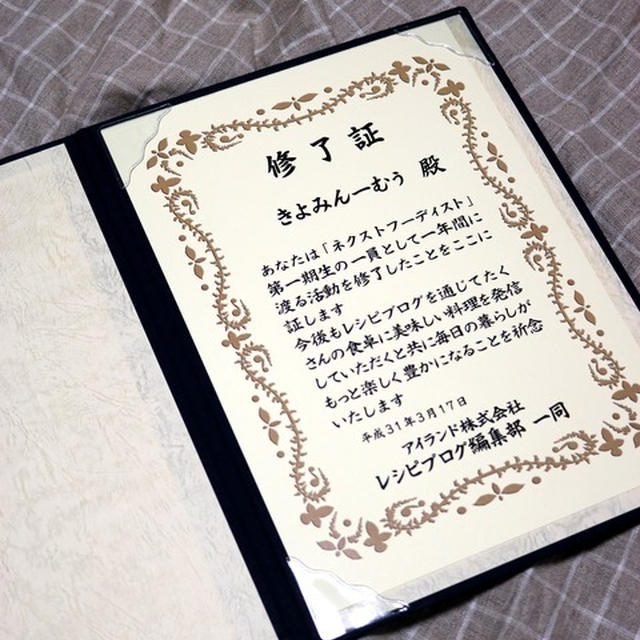 修了証
きよみんーむぅ 殿
あなたは「ネクストフーディスト」
第一期生の一員として一年間に
渡る活動を修了したことをここに
証します
今後もレシピブログを通じてたく
さんの食卓に美味しい料理を発信
していただくと共に毎日の暮らしが
もっと楽しく豊かになることを祈念
いたします
平成31年3月17日
アイランド株式会社
レシピブログ編集部 一同